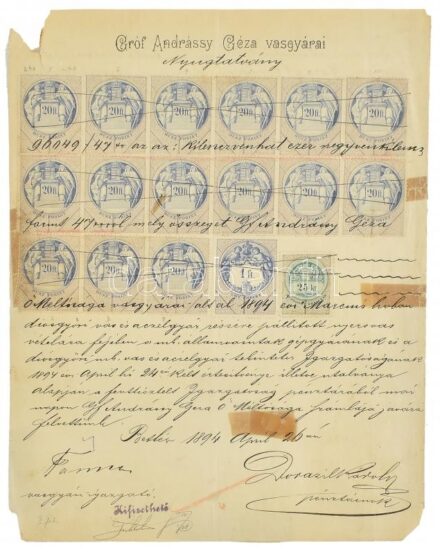 Gróf Andrássy Géza vasgyárai
Nyugtatvány
20 ft 20 ft 20 ft 20 ft 20 ft 20 ft
96049/47 az az: Kilenczvenhat ezer negyvenkilencz
20 ft 20 ft 20 ft 20 ft 20 ft 20 ft
forint 47 mely összeget Gf Andrássy Géza
20 ft 20 ft 20 ft 1 ft 25 kr
Ő Méltósága vasgyárai által 1894 évi Marczius hóban
diósgyőri vas és aczélgyár részére szállított nyersvas
vételára fejében a m. kir. államvasutak gépgyárának és a
diósgyőri m. kir. vas és aczélgyár tekintetes Igazgatóságának
1894 évi April hó 24én kelt értesítvénye illetve utalványa
alapján a Igazgatóság pénztárából mai
napon Gf Andrássy Géza Ő Méltósága javára
felvettünk.
Betlér 1894 April 26án
vasgyári igazgató
Kifizethető
Károly
pénztárnok